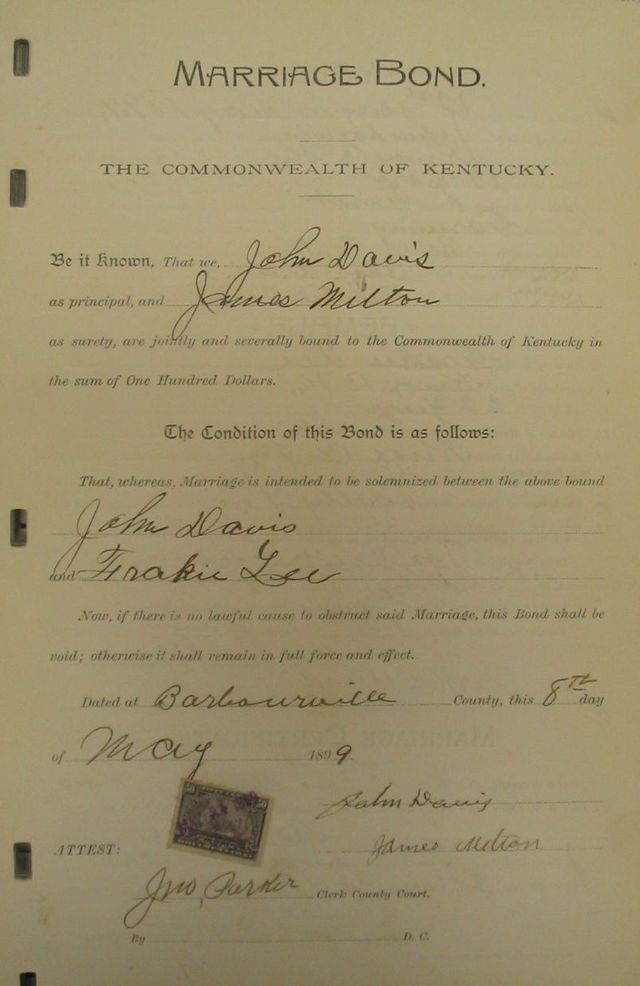 MARRIAGE BOND.
THE COMMONWEALTH OF KENTUCKY.
Be it Known, That we, John Davis
as principal, and James Milton
as surety, are jointly and severally bound to the Commonwealth of Kentucky in
the sum of One Hundred Dollars.
The Condition of this Bond is as follows:
That, whereas, Marriage is intended to be solemnized between the above bound
John Davis
and Frakie Lee
Now, if there is no lawful cause to obstruct said Marriage, this Bond shall be
void; otherwise it shall remain in full force and effect.
Dated at Barbourville County, this 8TH day
of May 1899
50 50
John Davis
James Milton
ATTEST:
Jno, Parker Clerk County Court.
By D. C.